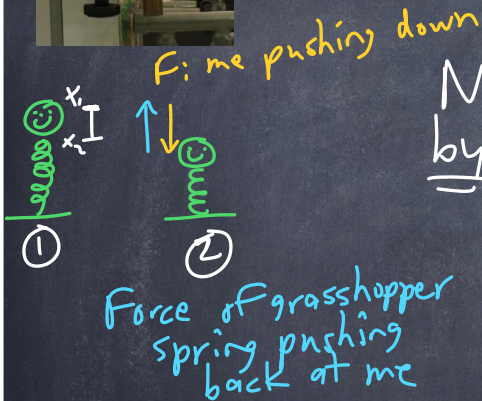 F: me pushing down
N
by
X₁
X₂
①
②
Force of grasshopper
spring pushing
back at me